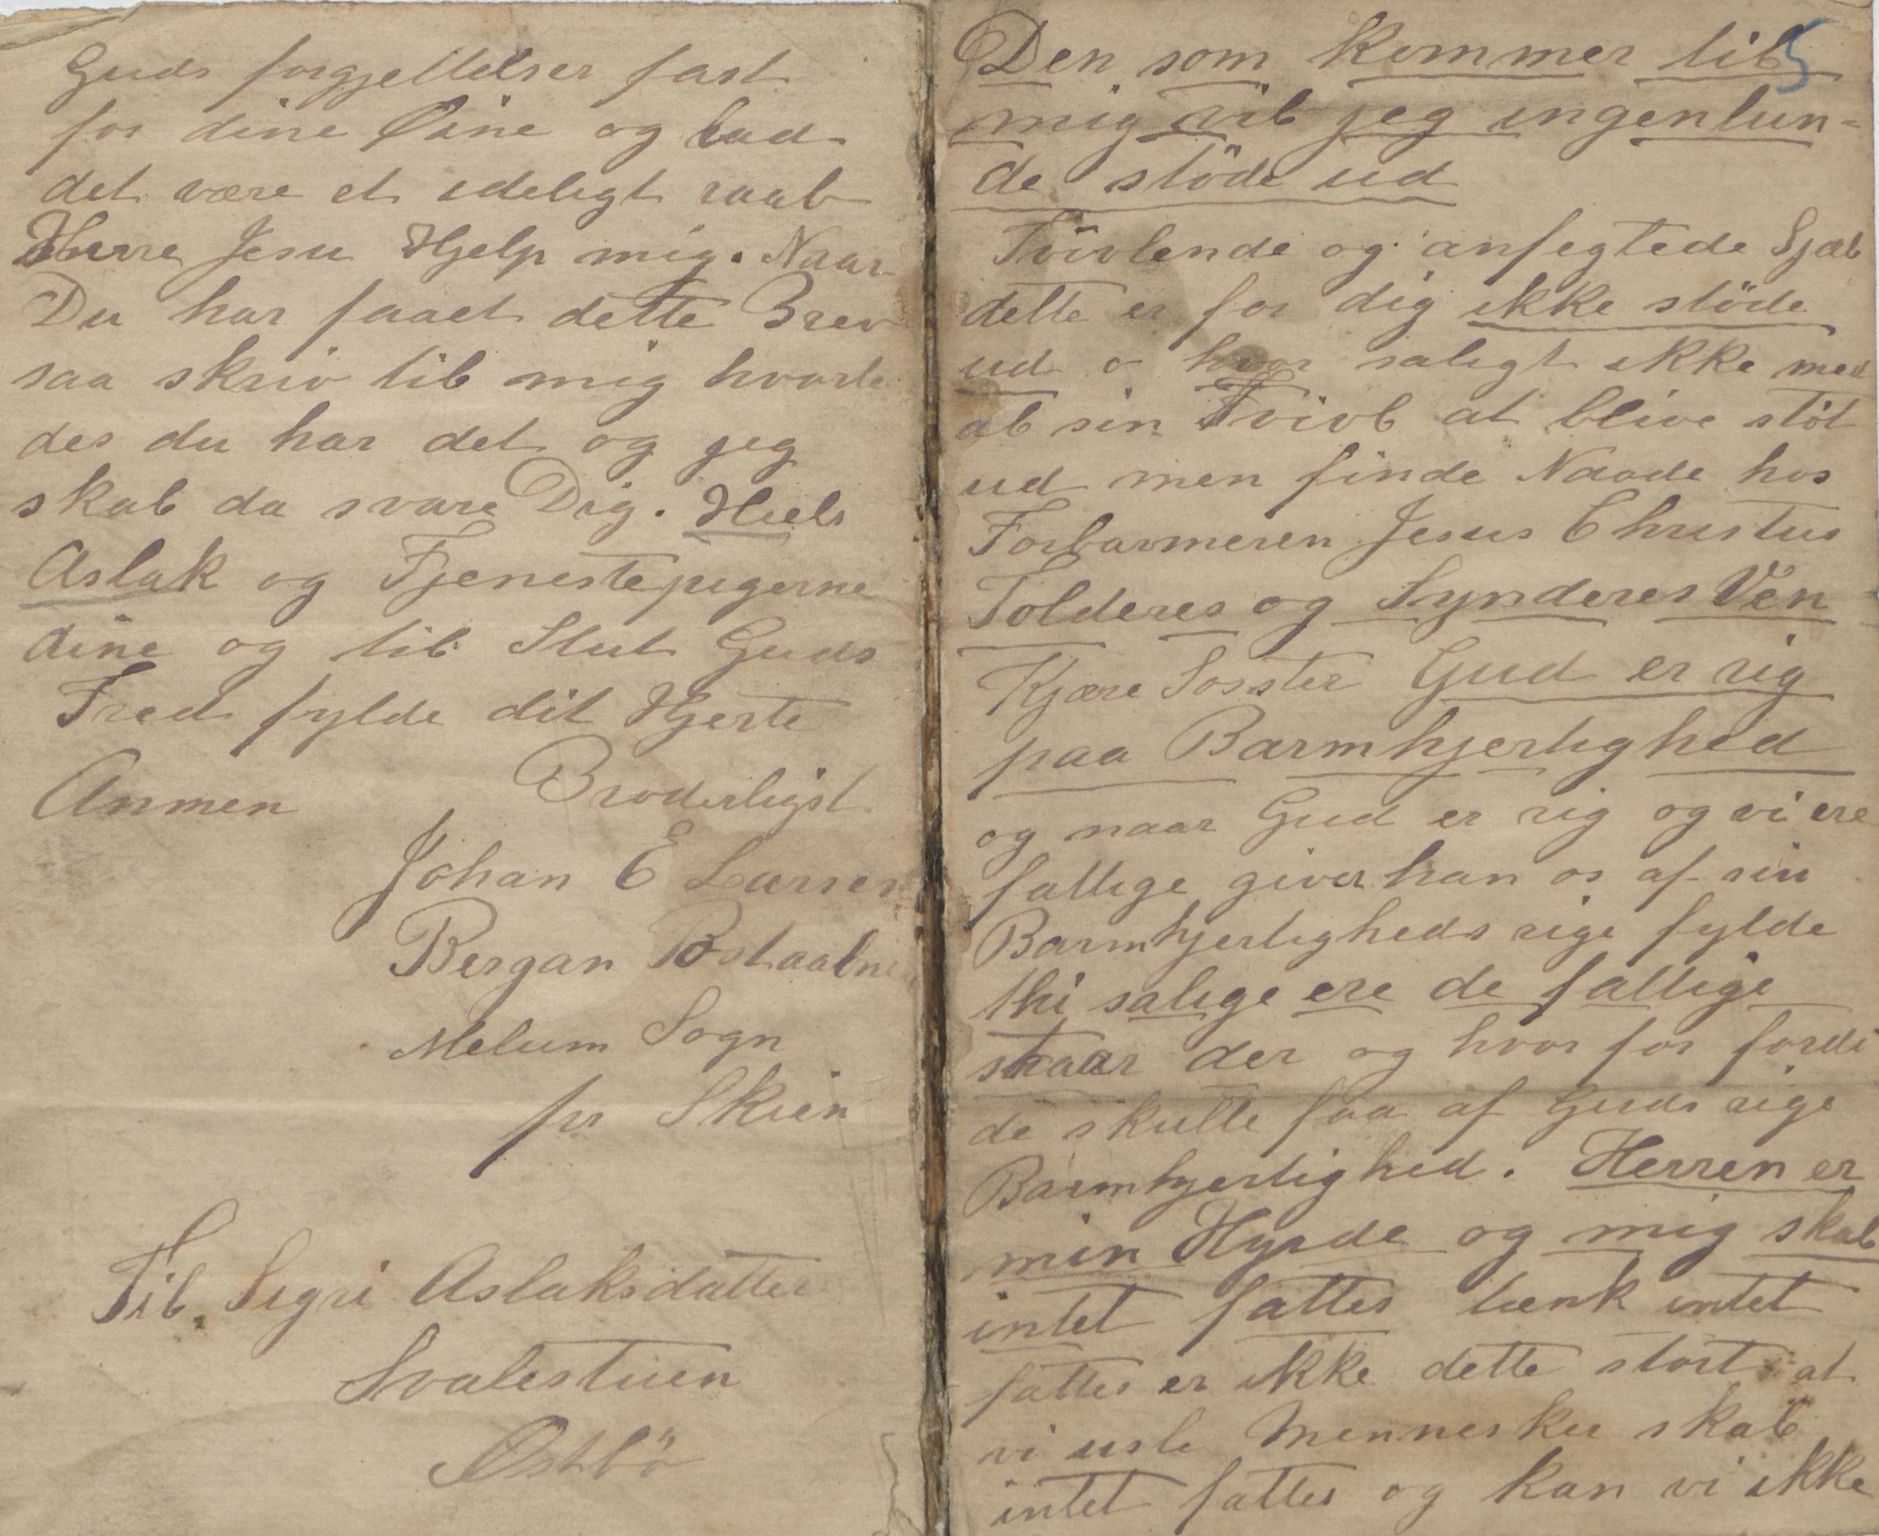 Guds forgjettelser fast
for dine Øine og lad
det være et ideligt raab
Herre Jesu Hjelp mig. Naar
Du har faaet dette Brev
saa skriv til mig hvorle
des du har det og jeg
skal da svare Dig. Hils
Aslak og Tjenestepigerne
dine og til Slut Guds
Fred fylde dit Hjerte
Anmen Broderligst
Johan E Larsen
Bergan Postaabneri
Melum Sogn
pr Skien
Til Sigri Aslaksdatter
Svalestuen
Østbö
5
Den som kommer til
mig vil jeg ingenlun-
de støde ud
Tvivlende og anfegtede Sjæl
dette er for dig ikke støde
ud o hvor saligt ikke med
al sin Tvivl at blive støt
ud men finde Naade hos
Forbarmeren Jesus Christus
Tolderes og Synderes Ven
Kjære Søster Gud er rig
paa Barmhjertighed
og naar Gud er rig og vi ere
fattige giver han os af sin
Barmhjertigheds rige fylde
thi salige ere de fattige
staar der og hvor for fordi
de skulle faa af Guds rige
Barmhjertighed. Herren er
min Hyrde og mig skal
intet fattes tænk intet
fattes er ikke dette stort at
vi usle Mennesker skal
intet fattes og kan vi ikke